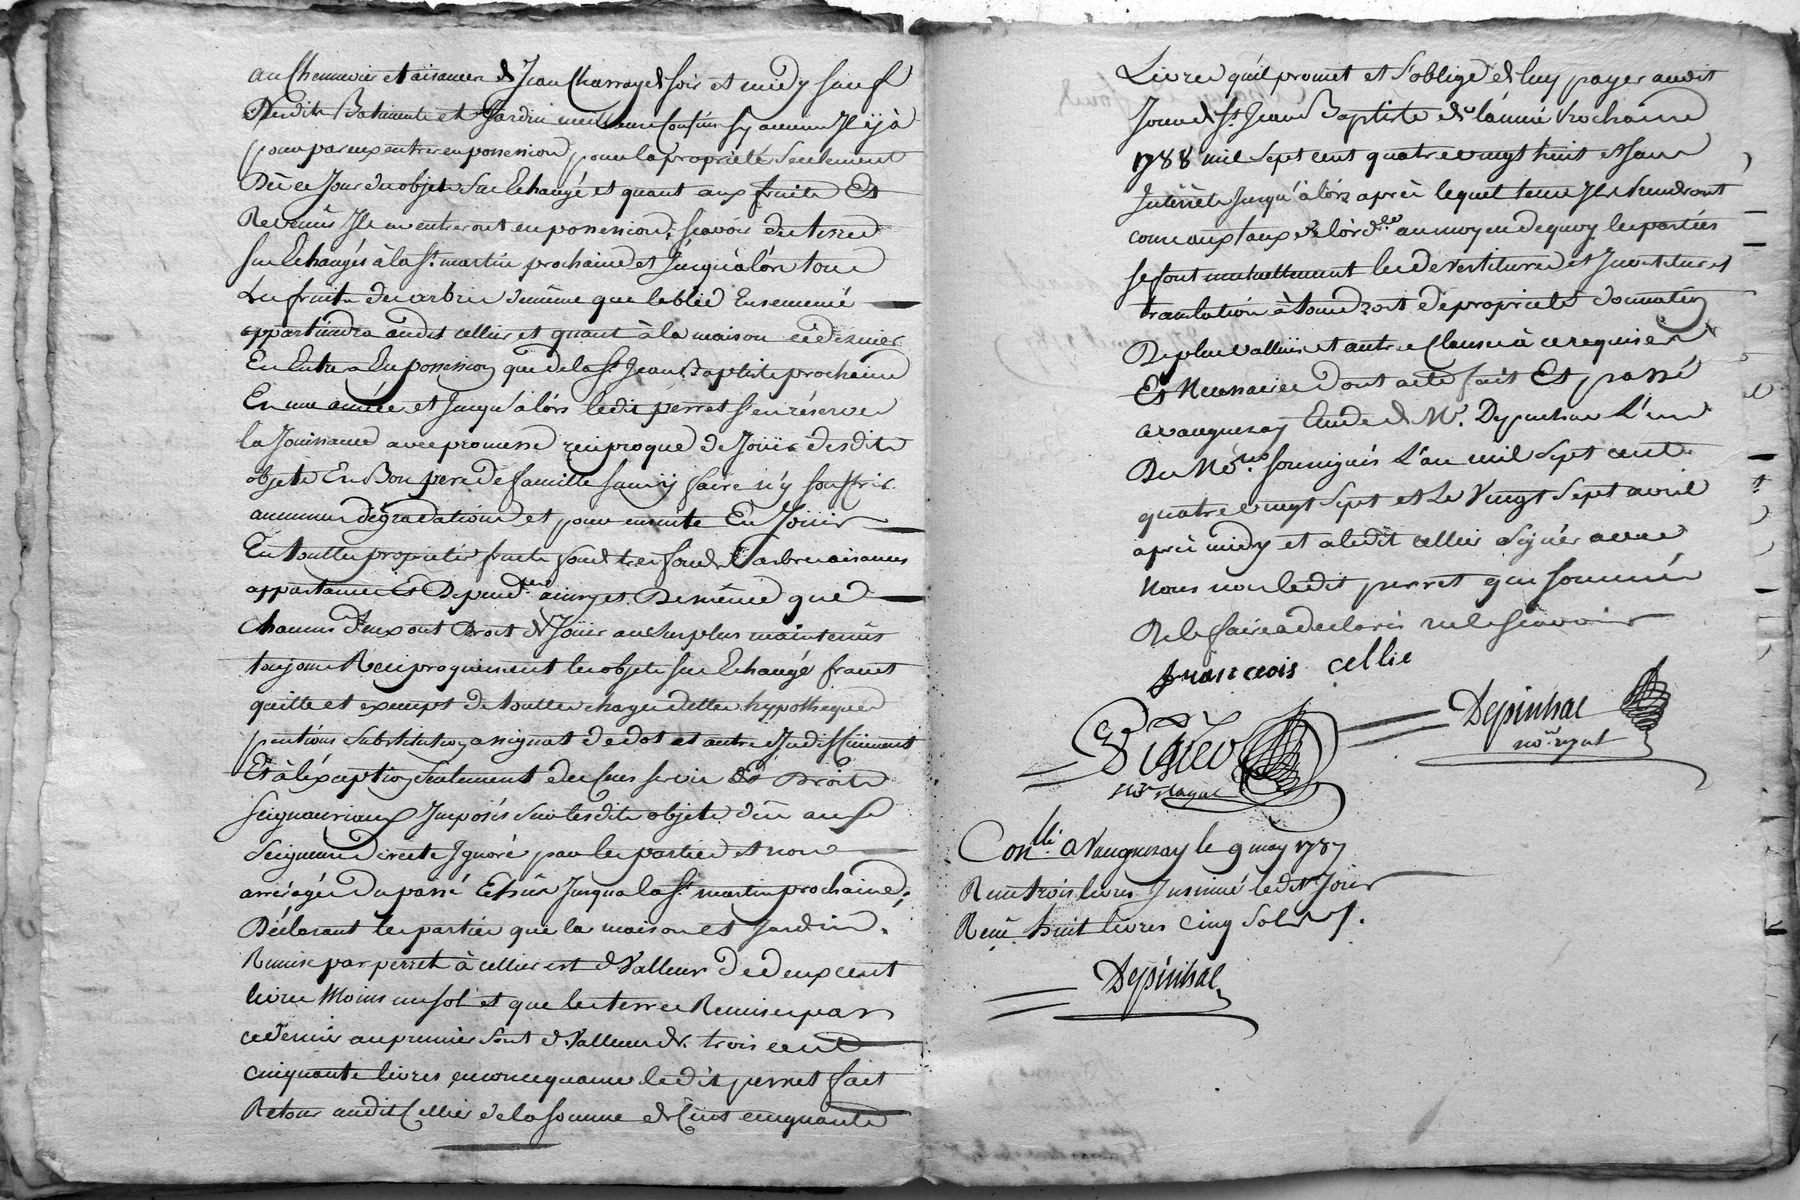 au Chenevier et aisances de Jean Charraye de soir et midy sauf
Desdits Batiments et Jardin meilleurs Confins sy aucuns Il y à
pour par eux entrer en possession, pour la propriété seulement
Dès ce Jour des objets sus Echangé et quant aux fruits Et
Revenus Ils en entreront en possession, scavoir des terres
sus Echangés à la St. martin prochaine et Jusqu'alors tous
Les fruits des arbres de même que le bled Ensemencé
appartiendra audit cellier et quant à la maison ce dernier
En Entrera En possession que de la St Jean Baptiste prochaine
En une année et Jusqu'alors ledit perret s'en réserve
la Jouissance avec promesse reciproque de Joüir desdits
objets En Bon pere de famille sans y faire n'y souffrir
aucunes dégradations et pour ensuite En Joüir
En toutte proprieté, fruits fonds tres fonds arbres aisances
appartances Et Depend.ces ainsy et De même que
Chacuns d'eux ont Droit de Joüir au surplus maintenûs
toujours Reciproquement les objets sus Echangé francs
quitte et exempt de touttes charges dettes hypotheques
pentions substitution assignat de dot et autres
Et à l'exception seulement des Cens servis Et Droits
seigneuriaux Imposés sur lesdits objets dûs aux
seigneurs directs Ignoré par les parties et non
arréragés du passé Et dûs Jusqua la St martin prochaine;
Déclarant les parties que la maison et Jardin
Remise par perret à cellier est de Valleur de deux cent
livres Moins un sol et que les terres Remises par
ce dernier au premier sont de Valleur de trois cent
cinquante livres en concequance ledit perret fait
Retour audit Cellier de la somme de Cent cinquante
Livres qu'il promet et s'oblige de luy payer audit
Jour de St Jean Baptiste de l'année Prochaine
1788 mil sept cent quatre vingt huit et sans
Intérêts Jusqu'àlors après lequel tems Ils prendront
cour aux taux de l'ord.ce au moyen de quoy les parties
se font mutuellement les devestitures et Investitures
translation à tous droit de propriété donnation
De plus vallüe et autre Clause à ce requises
Et Necessaires dont acte fait Et passé
a vaugneray Etude de Me. Depinhac L'un
Des Nores soussignés L'an mil sept cent
quatre vingt sept et Le Vingt sept avril
après midy et a ledit cellier signér avec
Nous non ledit perret qui sommé
De le faire a declaré ne le scavoir
francois cellie
Depinhac
nore. royal
nore. Royal
Con.lle a Vaugneray le 9 may 1787
Reçu trois livres Insinué ledit Jour
Reçu huit livres cinq sols
Depinhac